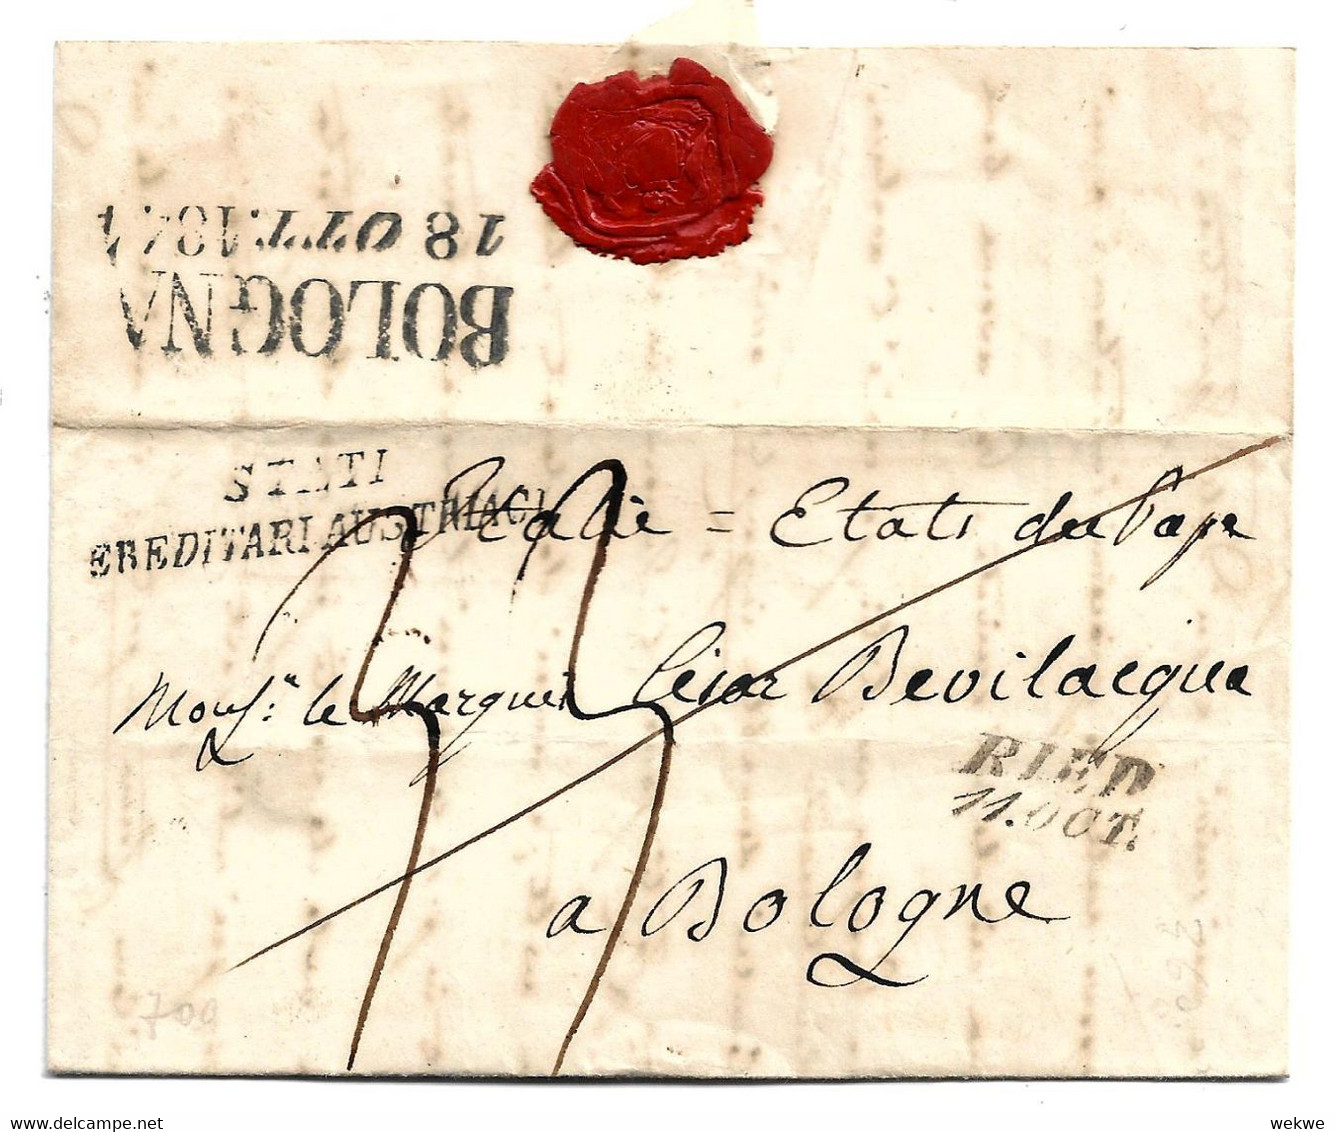 BOLOGNA
18 OTT. 1841
STATI
EREDITARI AUSTRIACI
Italie = Etats du Pape
Monsr. le Marquis César Bevilacqua
RIED
11. OCT.
a Bologne
700
wekwe